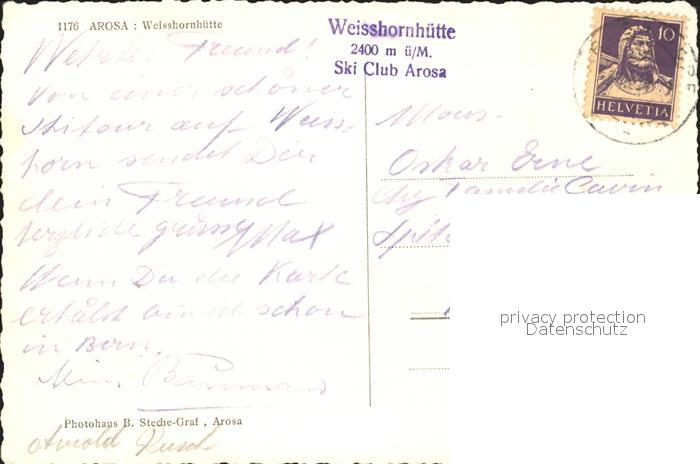 1176 AROSA : Weisshornhütte
Weisshornhütte
2400 m ü/M.
Ski Club Arosa
10
HELVETIA
Freund!
Von einer schöner
Skitour auf Weiss-
horn sendet Dir
dein Freund
herzliche grüsse Max
Wenn Du die Karte
erhälst bin ich schon
in Bern.
Mons.
Oskar Erne
chez Familie Cavin
privacy protection
Datenschutz
Photohaus B. Steche-Graf , Arosa
Arnold Rusch